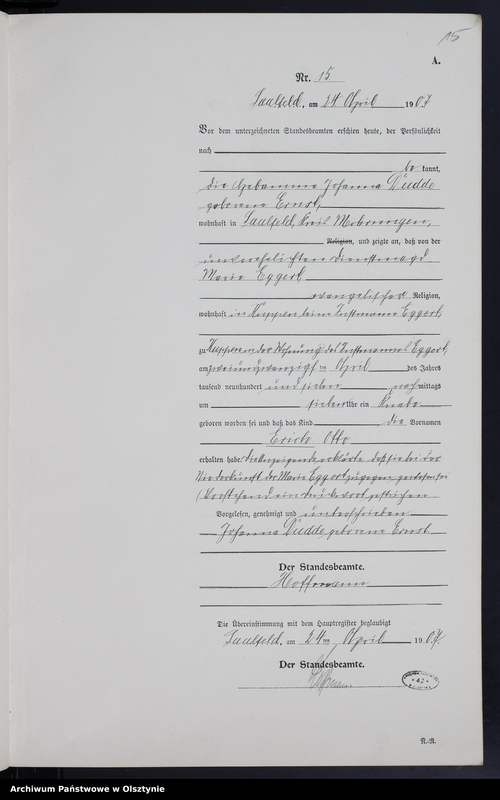 15
A.
Nr. 15
Saalfeld, am 24 April 1907
Vor dem unterzeichneten Standesbeamten erschien heute, der Persönlichkeit
nach
be kannt,
die Hebamme Johanna Dudde
geborene Ernst,
wohnhaft in Saalfeld, Kreis Mohrungen,
Religion, und zeigte an, daß von der
unverehelichten Dienstmagd
Marie Eggert,
evangelischer Religion,
wohnhaft in Kuppen beim Instmann Eggert,
zu Kuppen in der Wohnung des Instmannes Eggert,
am zweiundzwanzigsten April des Jahres
tausend neunhundert und sieben nachmittags
um sieben Uhr ein Knabe
geboren worden sei und daß das Kind die Vornamen
Erich Otto
erhalten habe. Die Anzeigende erklärte, daß sie bei der
Niederkunft der Marie Eggert zugegen gewesen sei
Vorstehend ein Druckwort gestrichen
Vorgelesen, genehmigt und unterschrieben
Johanna Dudde, geborene Ernst
Der Standesbeamte.
Hoffmann
Die Übereinstimmung mit dem Hauptregister beglaubigt
Saalfeld, am 24 ten April 1907.
Der Standesbeamte.
42
N.-R.
Archiwum Państwowe w Olsztynie